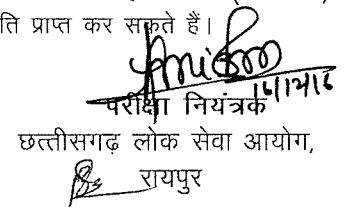 ति प्राप्त कर सकते हैं।
16/12/16
परीक्षा नियंत्रक
छत्तीसगढ़ लोक सेवा आयोग,
रायपुर